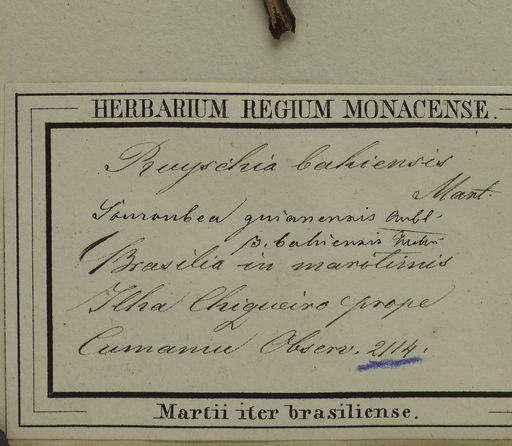 HERBARIUM REGIUM MONACENSE.
Ruyschia bahiensis
Mart.
Souroubea guianensis Aubl.
β. bahiensis
Brasilia in maritimis
Ilha Chiqueiro prope
Camamu Observ. 2114.
Martii iter brasiliense.